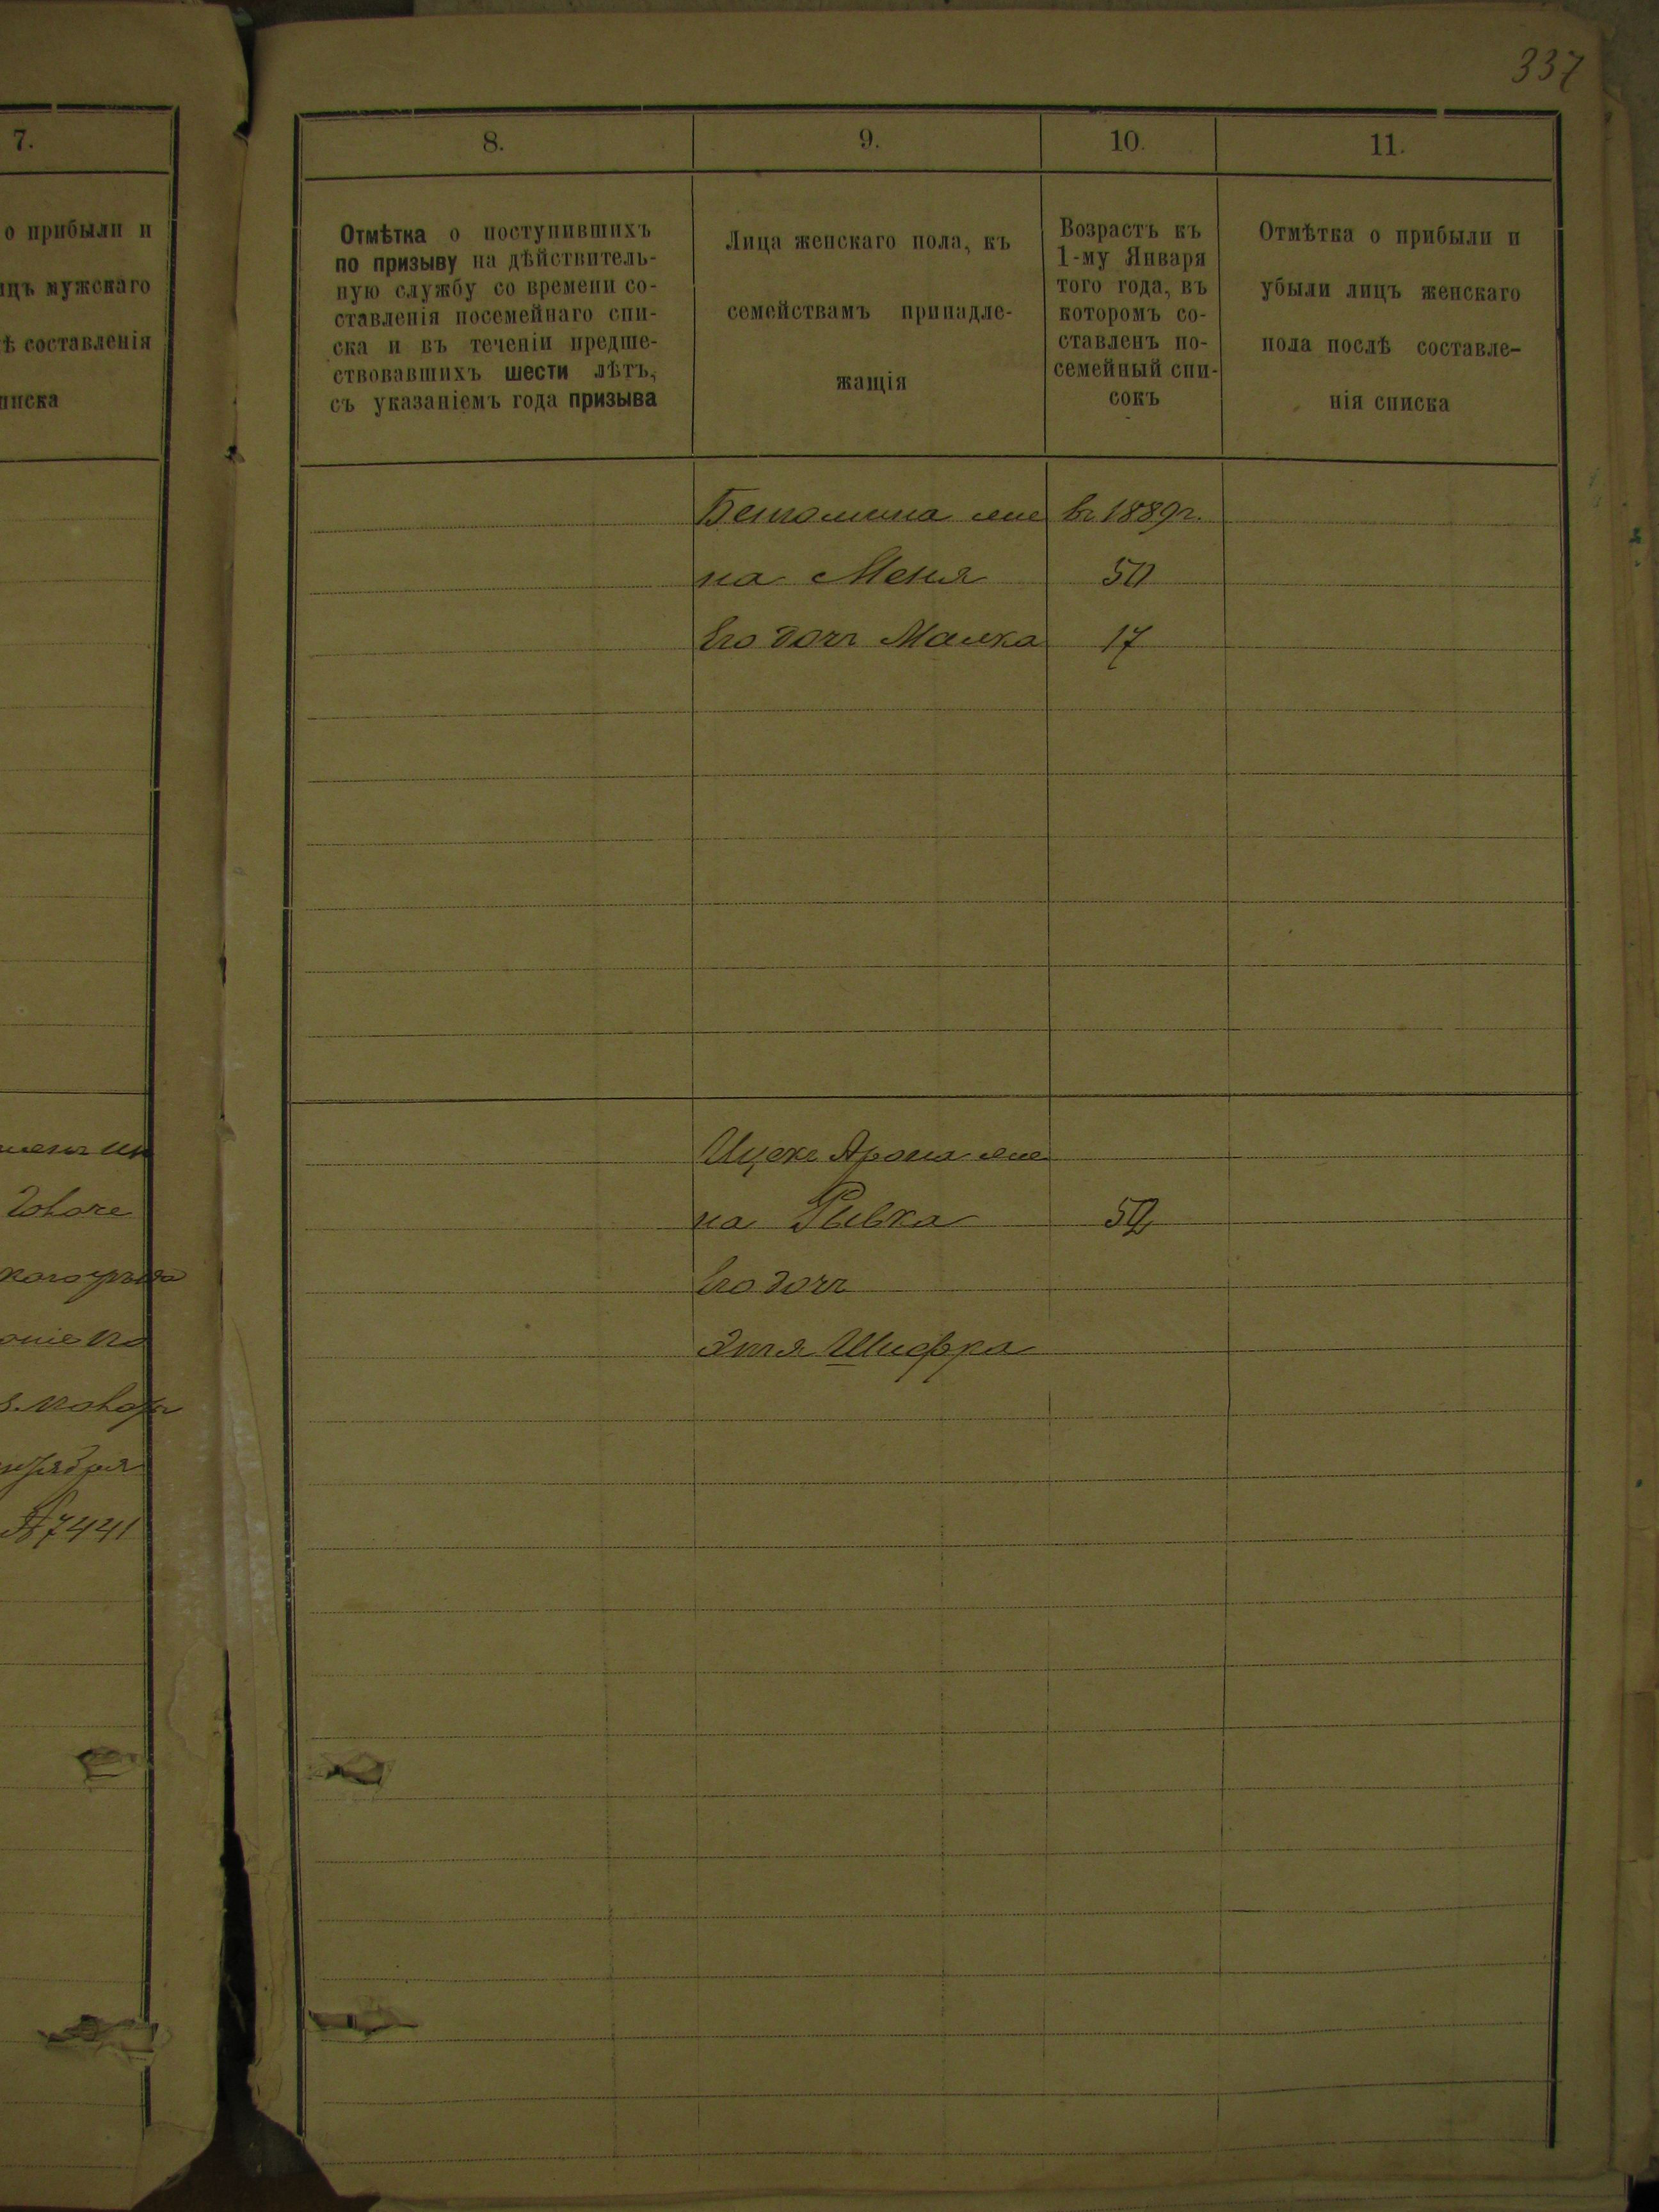 337
7.
о прибыли и
ицъ мужскаго
ѣ составленія
писка
8.
9.
10.
11.
Отмѣтка о поступившихъ
по призыву на дѣйствитель-
ную службу со времени со-
ставленія посемейнаго спи-
ска и въ теченіи предше-
ствовавшихъ шести лѣтъ,
съ указаніемъ года призыва
Лица женскаго пола, къ
семействамъ принадле-
жащія
Возрастъ къ
1-му Января
того года, въ
которомъ со-
ставленъ по-
семейный спи-
сокъ
Отмѣтка о прибыли и
убыли лицъ женскаго
пола послѣ составле-
нія списка
же въ 1889 г.
на Меня 50
Его дочь Малка 17
Ицека Арона же
на Ривка 52
Его дочь
Этя Шифра
№ 7441